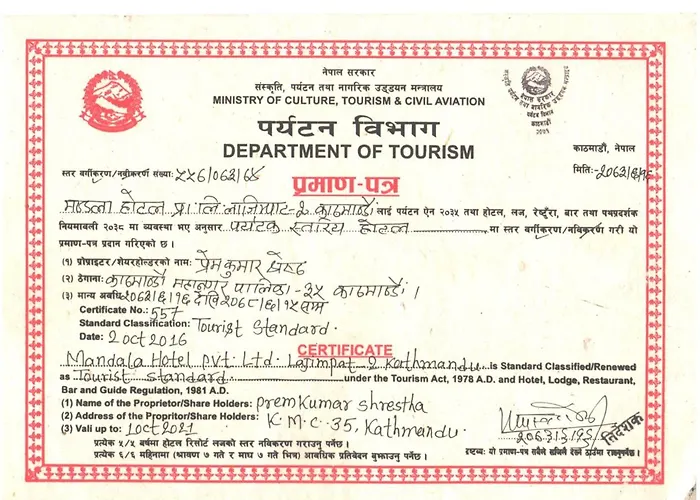 नेपाल सरकार
संस्कृति, पर्यटन तथा नागरिक उड्डयन मन्त्रालय
MINISTRY OF CULTURE, TOURISM & CIVIL AVIATION
पर्यटन विभाग
DEPARTMENT OF TOURISM
काठमाडौं, नेपाल
स्तर वर्गीकरण/नवीकरण संख्या:
मिति:-
प्रमाण-पत्र
मण्डला होटल प्रा.लि. लाजिम्पाट-२ काठमाण्डौं लाई पर्यटन ऐन २०३५ तथा होटल, लज, रेष्टुँरा, बार तथा पथप्रदर्शक
नियमावली २०३८ मा व्यवस्था भए अनुसार पर्यटक स्तरिय होटल मा स्तर वर्गीकरण/नविकरण गरी यो
प्रमाण-पत्र प्रदान गरिएको छ ।
(१) प्रोप्राइटर/शेयरहोल्डरको नाम: प्रेम कुमार श्रेष्ठ
(२) ठेगाना: काठमाण्डौ महानगर पालिका -३५ काठमाण्डौं ।
(३) मान्य अवधि:
Certificate No.: 557
Standard Classification: Tourist Standard.
Date: 2 oct 2016
CERTIFICATE
Mandala Hotel Pvt. Ltd. Lajimpat 2 Kathmandu is Standard Classified/Renewed
as Tourist Standard under the Tourism Act, 1978 A.D. and Hotel, Lodge, Restaurant,
Bar and Guide Regulation, 1981 A.D.
(1) Name of the Proprietor/Share Holders: prem Kumar Shrestha
(2) Address of the Propritor/Share Holders: K.M.C-35, Kathmandu.
(3) Vali up to: 1 oct 2021
निर्देशक
प्रत्येक ५/५ वर्षमा होटल रिसोर्ट लजको स्तर नविकरण गराउनु पर्नेछ ।
प्रत्येक ६/६ महिनामा (श्रावण ७ गते र माघ ७ गते भित्र) आवधिक प्रतिवेदन बुझाउनु पर्नेछ ।
द्रष्टव्य: यो प्रमाण-पत्र सबैले सजिलै देख्ने ठाउँमा राख्नुपर्नेछ ।